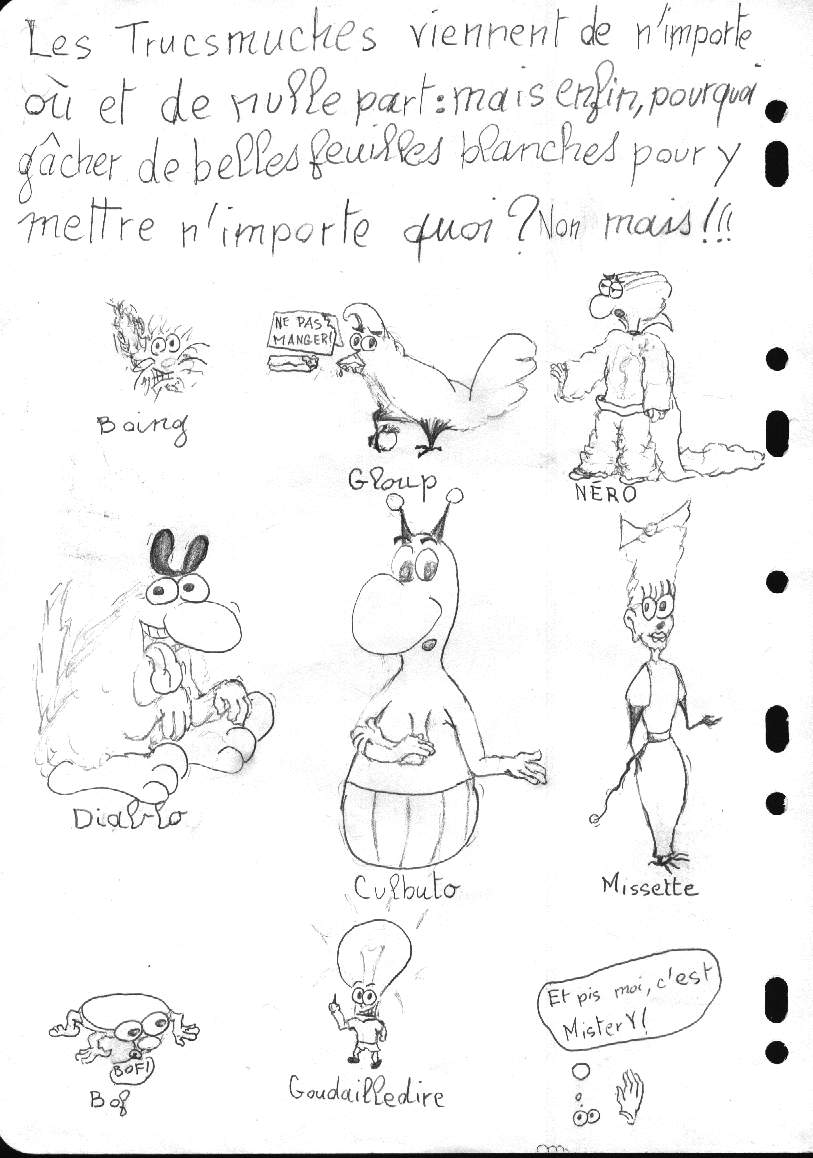 Les Trucsmuches viennent de n'importe
où et de nulle part: mais enfin, pourquoi
gâcher de belles feuilles blanches pour y
mettre n'importe quoi? Non mais!!!
NE PAS
MANGER!
Boing
Gloup
NÉRO
Diablo
Culbuto
Missette
BOF!
Bof
Goudailledire
Et pis moi, c'est
MisterY!